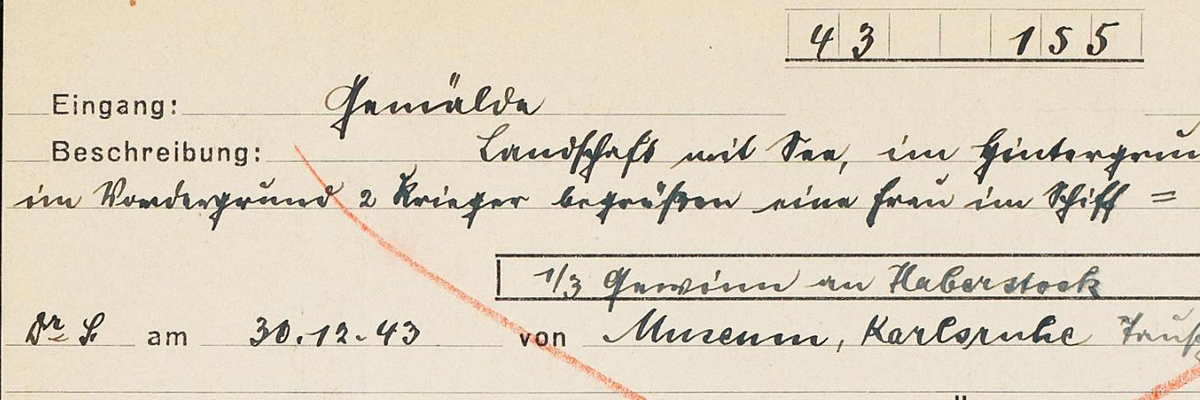 43 155
Eingang: Gemälde
Beschreibung: Landschaft mit See, im Hintergrun
im Vordergrund 2 Krieger begrüßen eine Frau im Schiff =
1/3 Gewinn an Haberstock
Dr. L. am 30.12.43 von Museum, Karlsruhe Taus